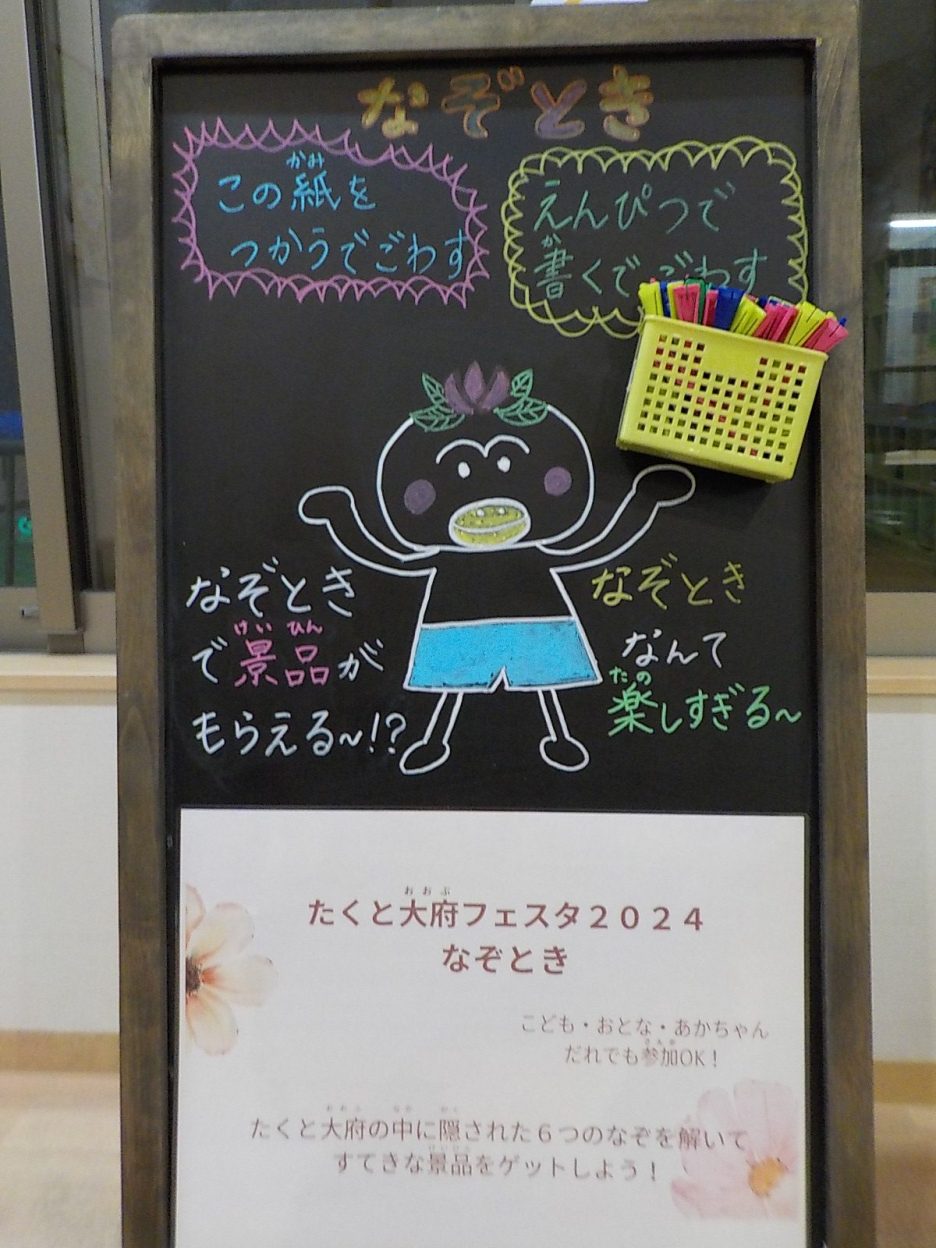 なぞとき
この紙を
つかうでごわす
かみ
えんぴつで
書くでごわす
か
なぞとき
で景品が
けいひん
もらえる~!?
なぞとき
なんて
楽しすぎる~
たの
たくと大府フェスタ2024
おおぶ
なぞとき
こども・おとな・あかちゃん
だれでも参加OK!
さんか
たくと大府の中に隠された6つのなぞを解いて
おおぶ なか かく
すてきな景品をゲットしよう!